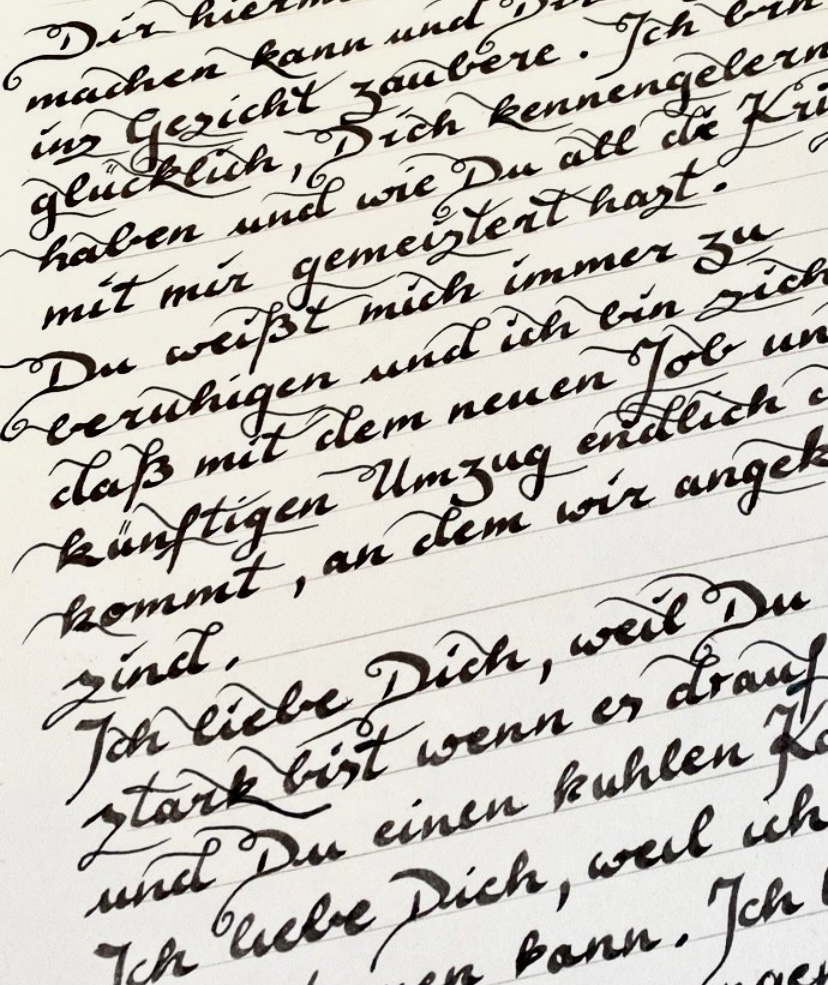 Dir hierm
machen kann und Dir
ins Gesicht zaubere. Ich bin
glücklich, Dich kennengelern
haben und wie Du all die Kri
mit mir gemeistert hast.
Du weißt mich immer zu
beruhigen und ich bin sich
daß mit dem neuen Job un
künftigen Umzug endlich d
kommt, an dem wir angek
sind.
Ich liebe Dich, weil Du
stark bist wenn es drauf
und Du einen kuhlen Ko
Ich liebe Dich, weil ich
kann. Ich b